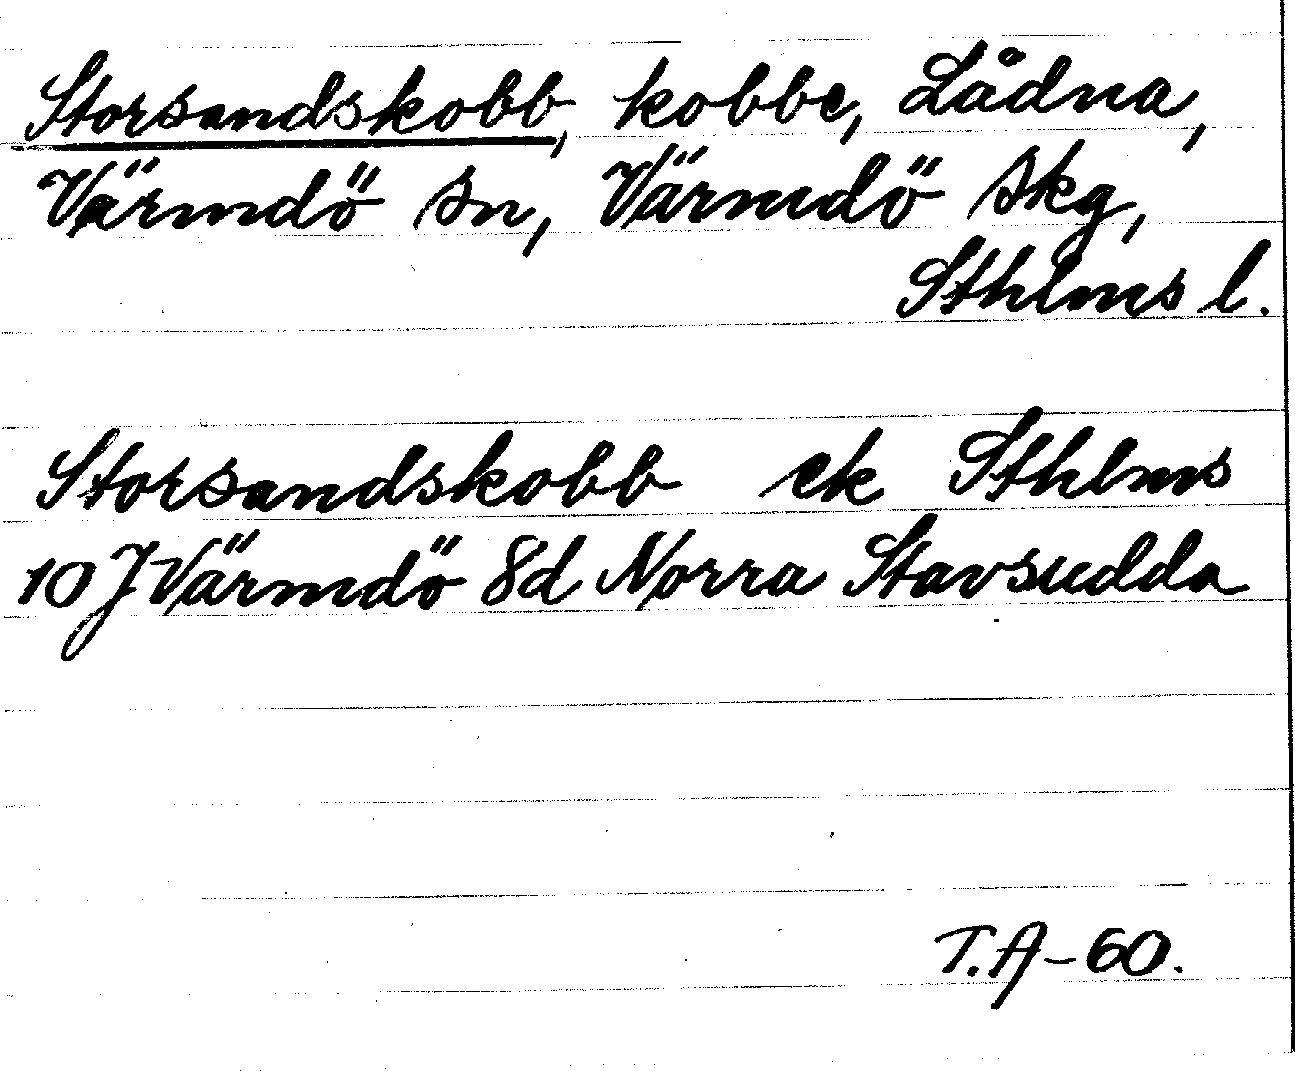 Storsandskobb, kobbe, Lådna,
Värmdö sn, Värmdö skg,
Sthlms l.
Storsandskobb ek Sthlms
10 J Värmdö 8d Norra Stavsudda
T.A-60.